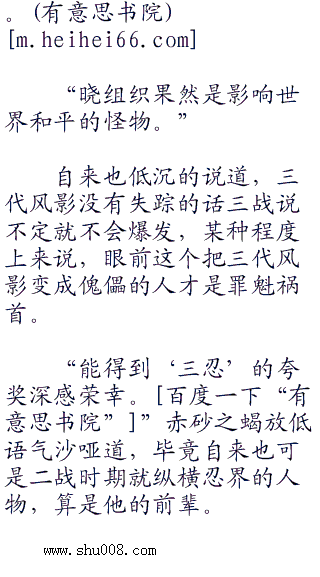 。(有意思书院)
[m.heihei66.com]
“晓组织果然是影响世
界和平的怪物。”
自来也低沉的说道，三
代风影没有失踪的话三战说
不定就不会爆发，某种程度
上来说，眼前这个把三代风
影变成傀儡的人才是罪魁祸
首。
“能得到‘三忍’的夸
奖深感荣幸。[百度一下“有
意思书院”]”赤砂之蝎放低
语气沙哑道，毕竟自来也可
是二战时期就纵横忍界的人
物，算是他的前辈。
www.shu008.com